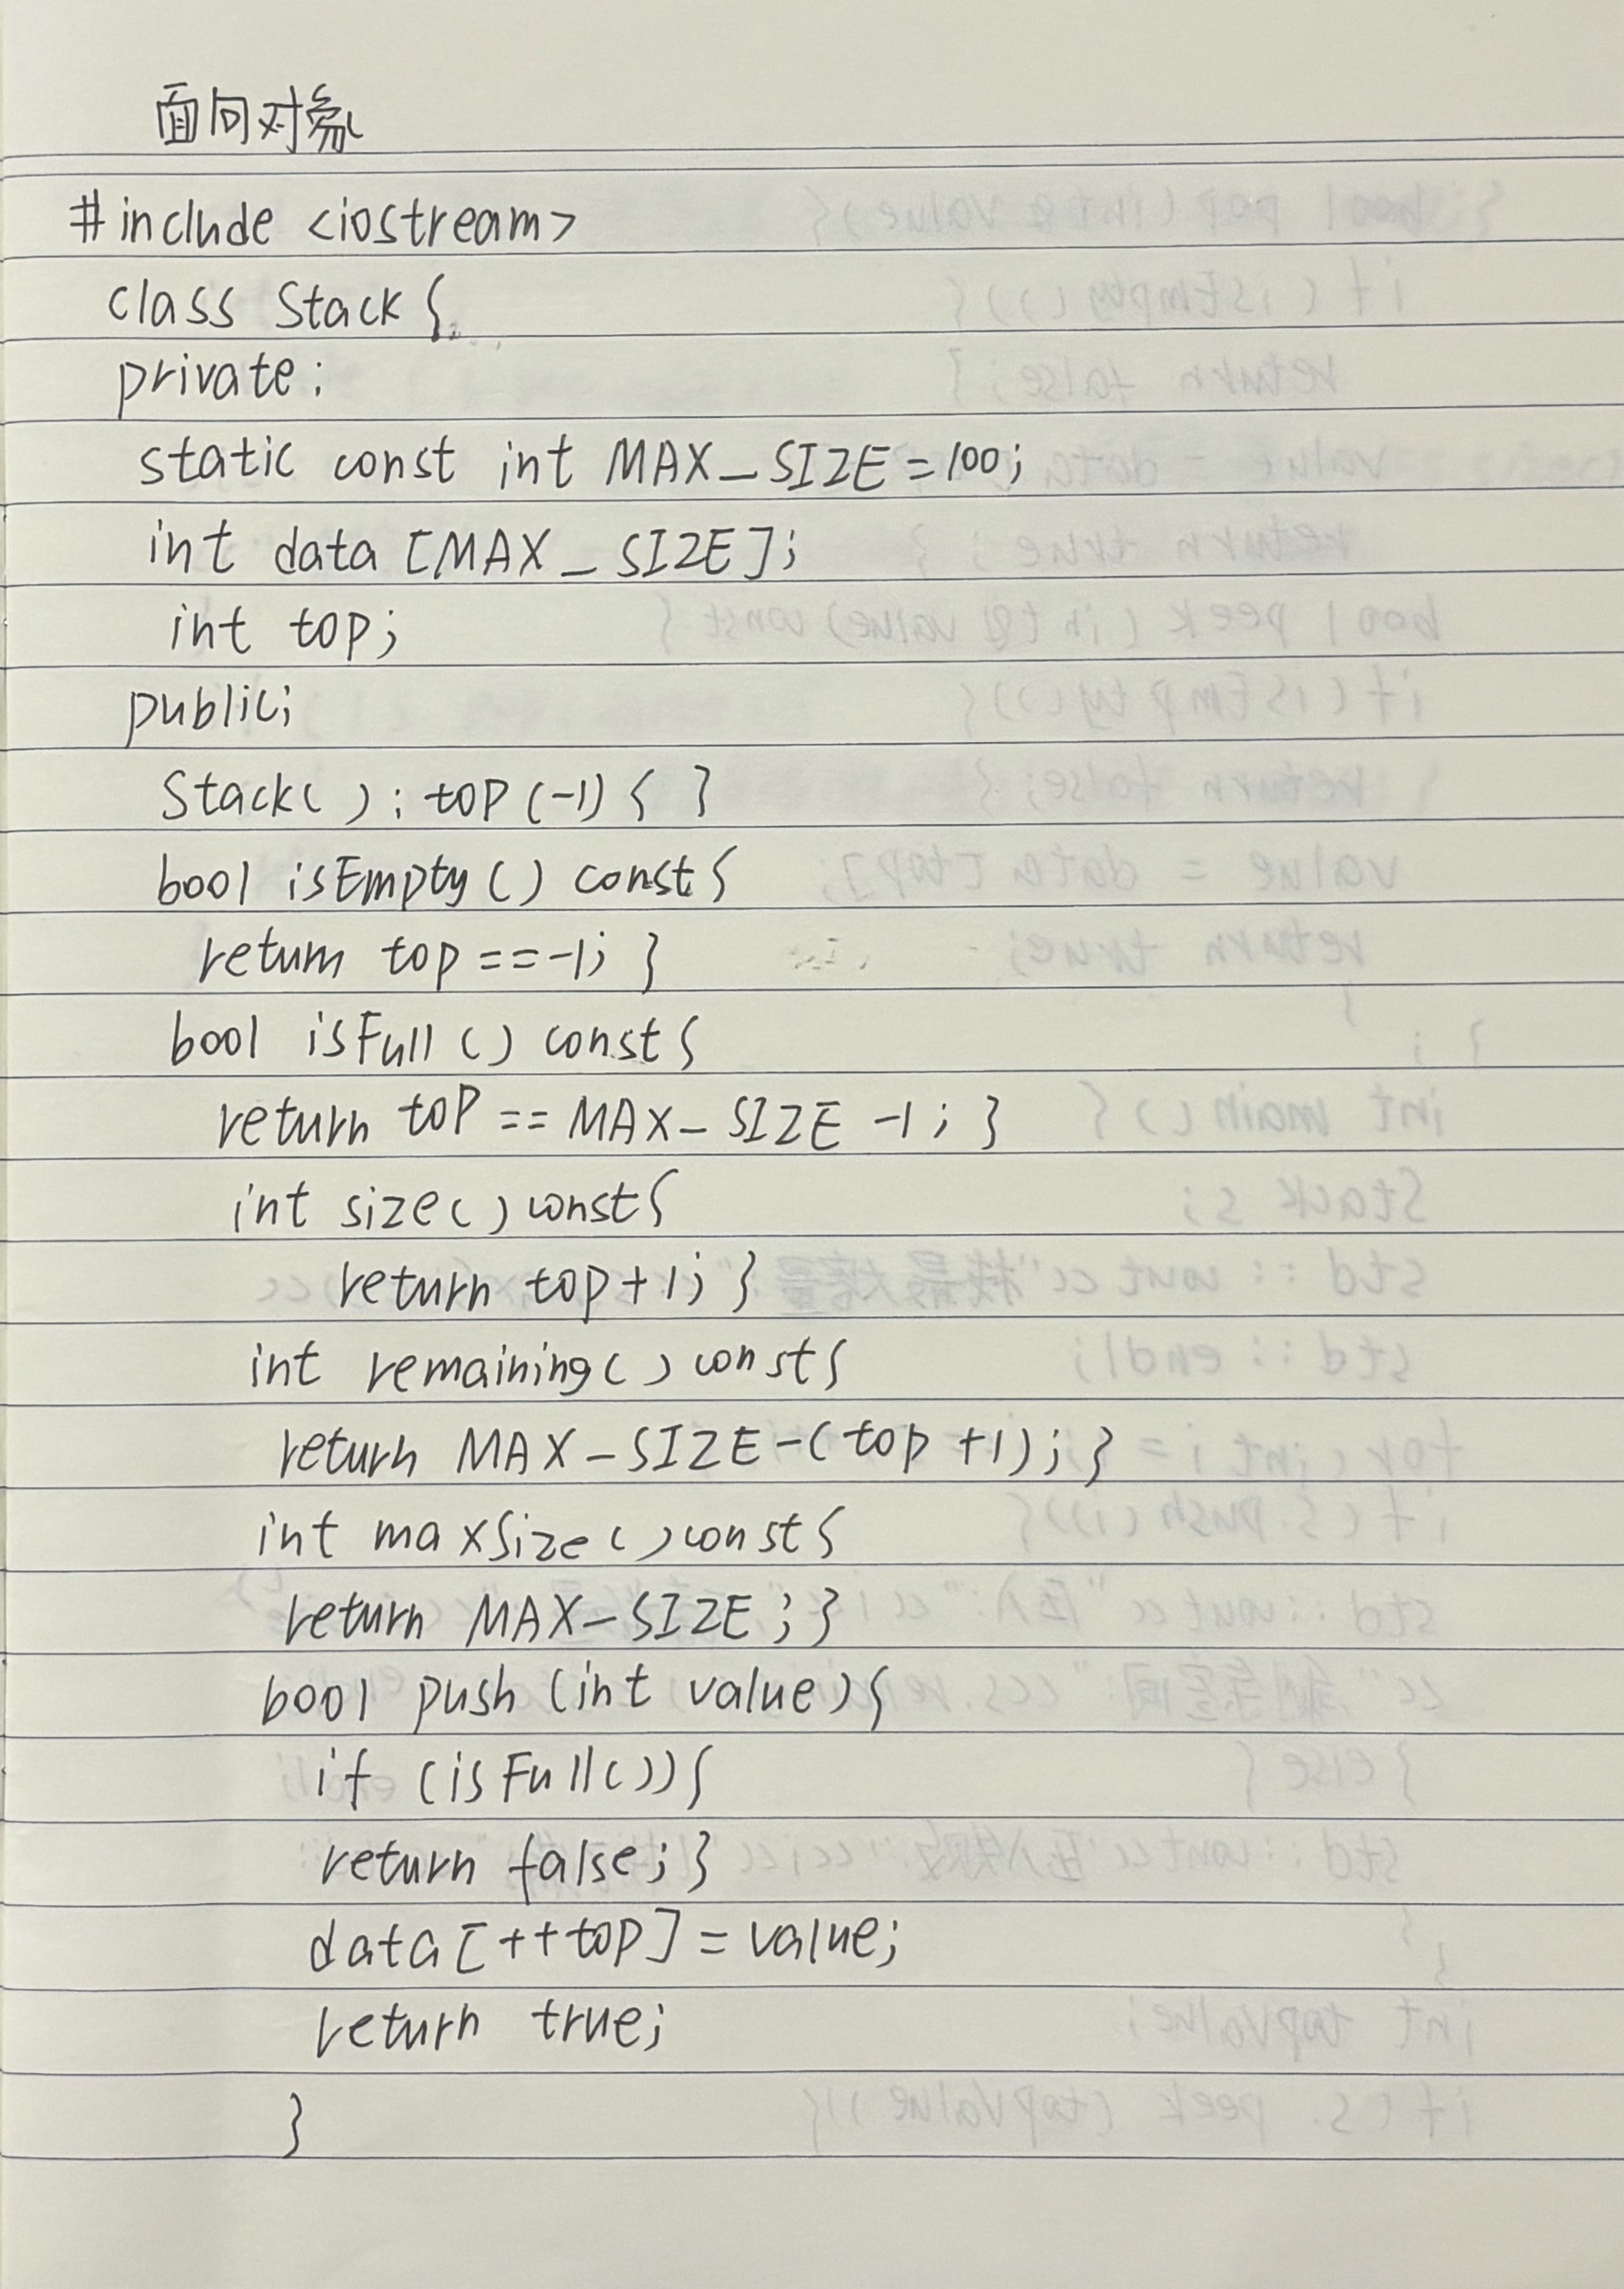 面向对象
#include <iostream>
class Stack {
private:
static const int MAX_SIZE=100;
int data [MAX_SIZE];
int top;
public:
Stack( ) : top (-1) { }
bool isEmpty () const {
return top ==-1; }
bool isFull () const {
return top == MAX_SIZE -1; }
int size() const {
return top+1; }
int remaining() const {
return MAX_SIZE-(top +1); }
int maxSize () const {
return MAX_SIZE ; }
bool push (int value) {
if (isFull()) {
return false; }
data [++top] = value;
return true;
}